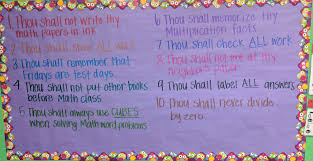 1 Thou shall not write thy
math papers in ink
2 Thou shall show ALL work
3 Thou shall remember that
Fridays are test days
4. Thou shall not put other books
before Math class
5 Thou shall always use CUBES
when solving Math word problems
6 Thou shall memorize thy
Multiplication facts
7 Thou shall check ALL work
8 Thou shall not look at thy
neighbor's paper
9 Thou shall label ALL answers
10 Thou shall never divide
by zero